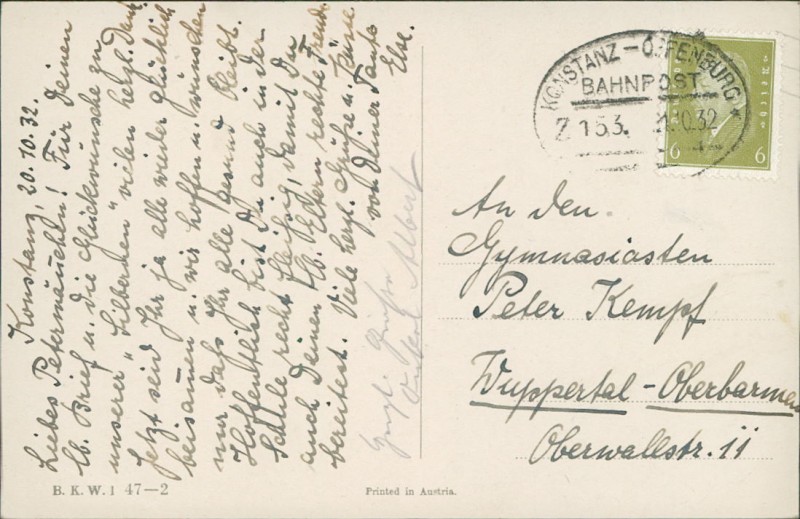 Konstanz, 20.10.32.
Liebes Petermäuschen! Für Deinen
lb. Brief u. die Glückwünsche zu
unserer "Silbernen" vielen herzl. Dank.
Jetzt seid Ihr ja alle wieder glücklich
beisamen u. wir hoffen u. wünschen
nur daß Ihr alle gesund bleibt.
Hoffentlich bist Du auch in der
Schule recht fleißig, damit Du
auch Deinen lb. Eltern rechte Freude
bereitest. Viele herzl. Grüße u. Küsse
von Deiner Tante
Else.
Herzl. Grüße
Onkel Albert
KONSTANZ - OFFENBURG
BAHNPOST
Z 153. 2.10.32
6 6
An den
Gymnasiasten
Peter Kempf
Wuppertal-Oberbarmen
Oberwallstr. 11
B. K. W. I 47—2
Printed in Austria.